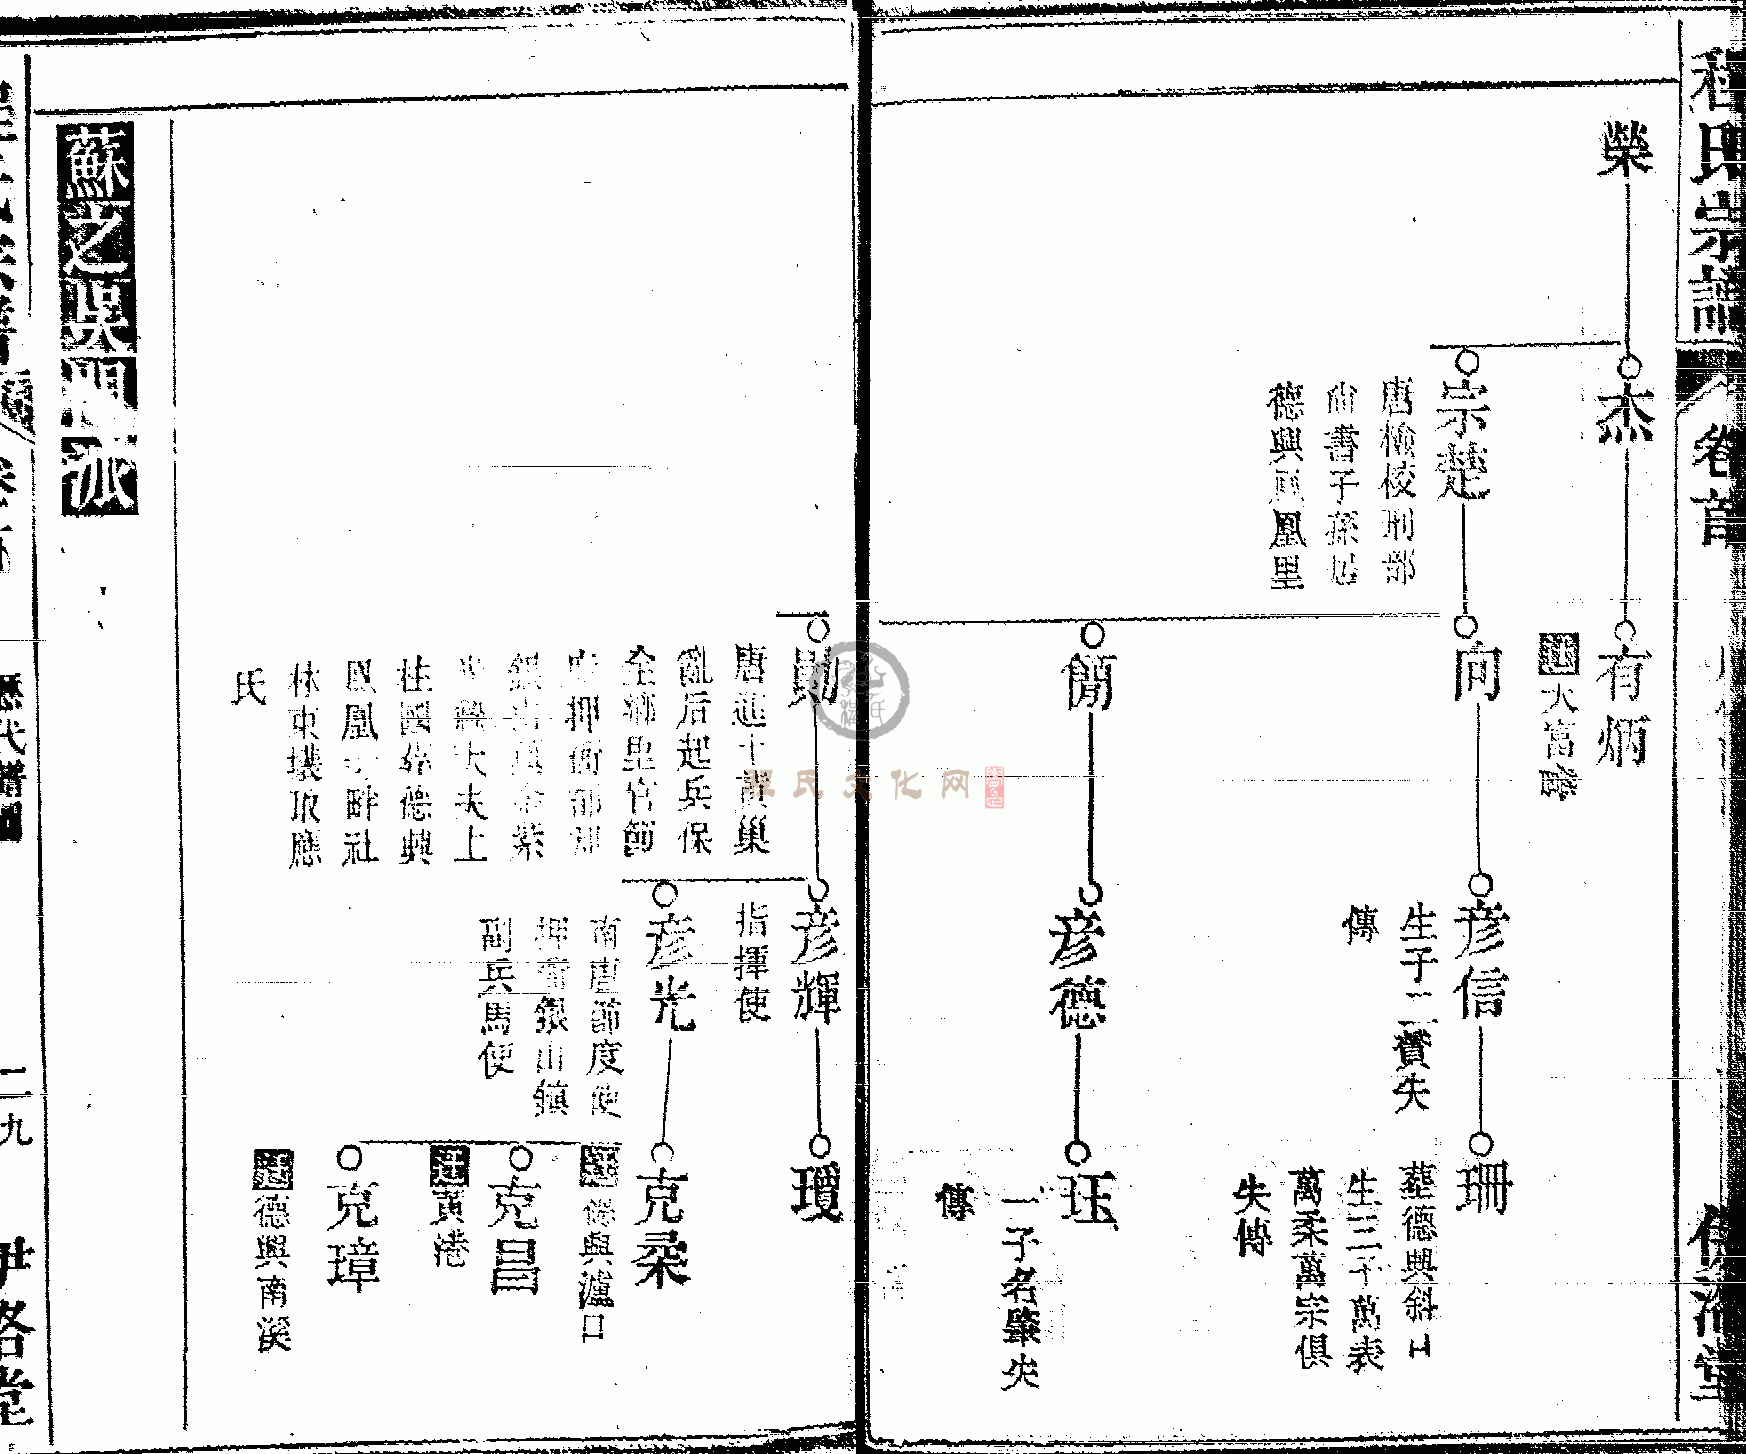 程氏宗譜
卷首
榮
杰
有炳
遷大富
宗楚
唐檢校刑部
尚書子孫居
德興鳳里
向
彦信
生子二贊失
傳
珊
葬德興斜口
生三子萬表
萬柔萬宗俱
失傳
簡
彦德
珏
一子名肇失
傳
勛
唐進士黃巢
亂后起兵保
全鄉里官節
度押衙部
銀青
大夫上
柱國葬德興
鳳凰 畔社
林東
氏
彦輝
指揮使
瓊
彦光
南唐節度使
押衙銀山鎮
副兵馬使
克柔
德興瀘口
克昌
遷黃港
克璋
遷德興南溪
蘇之吳門派
歷代譜
二九
伊洛堂
程氏文化网